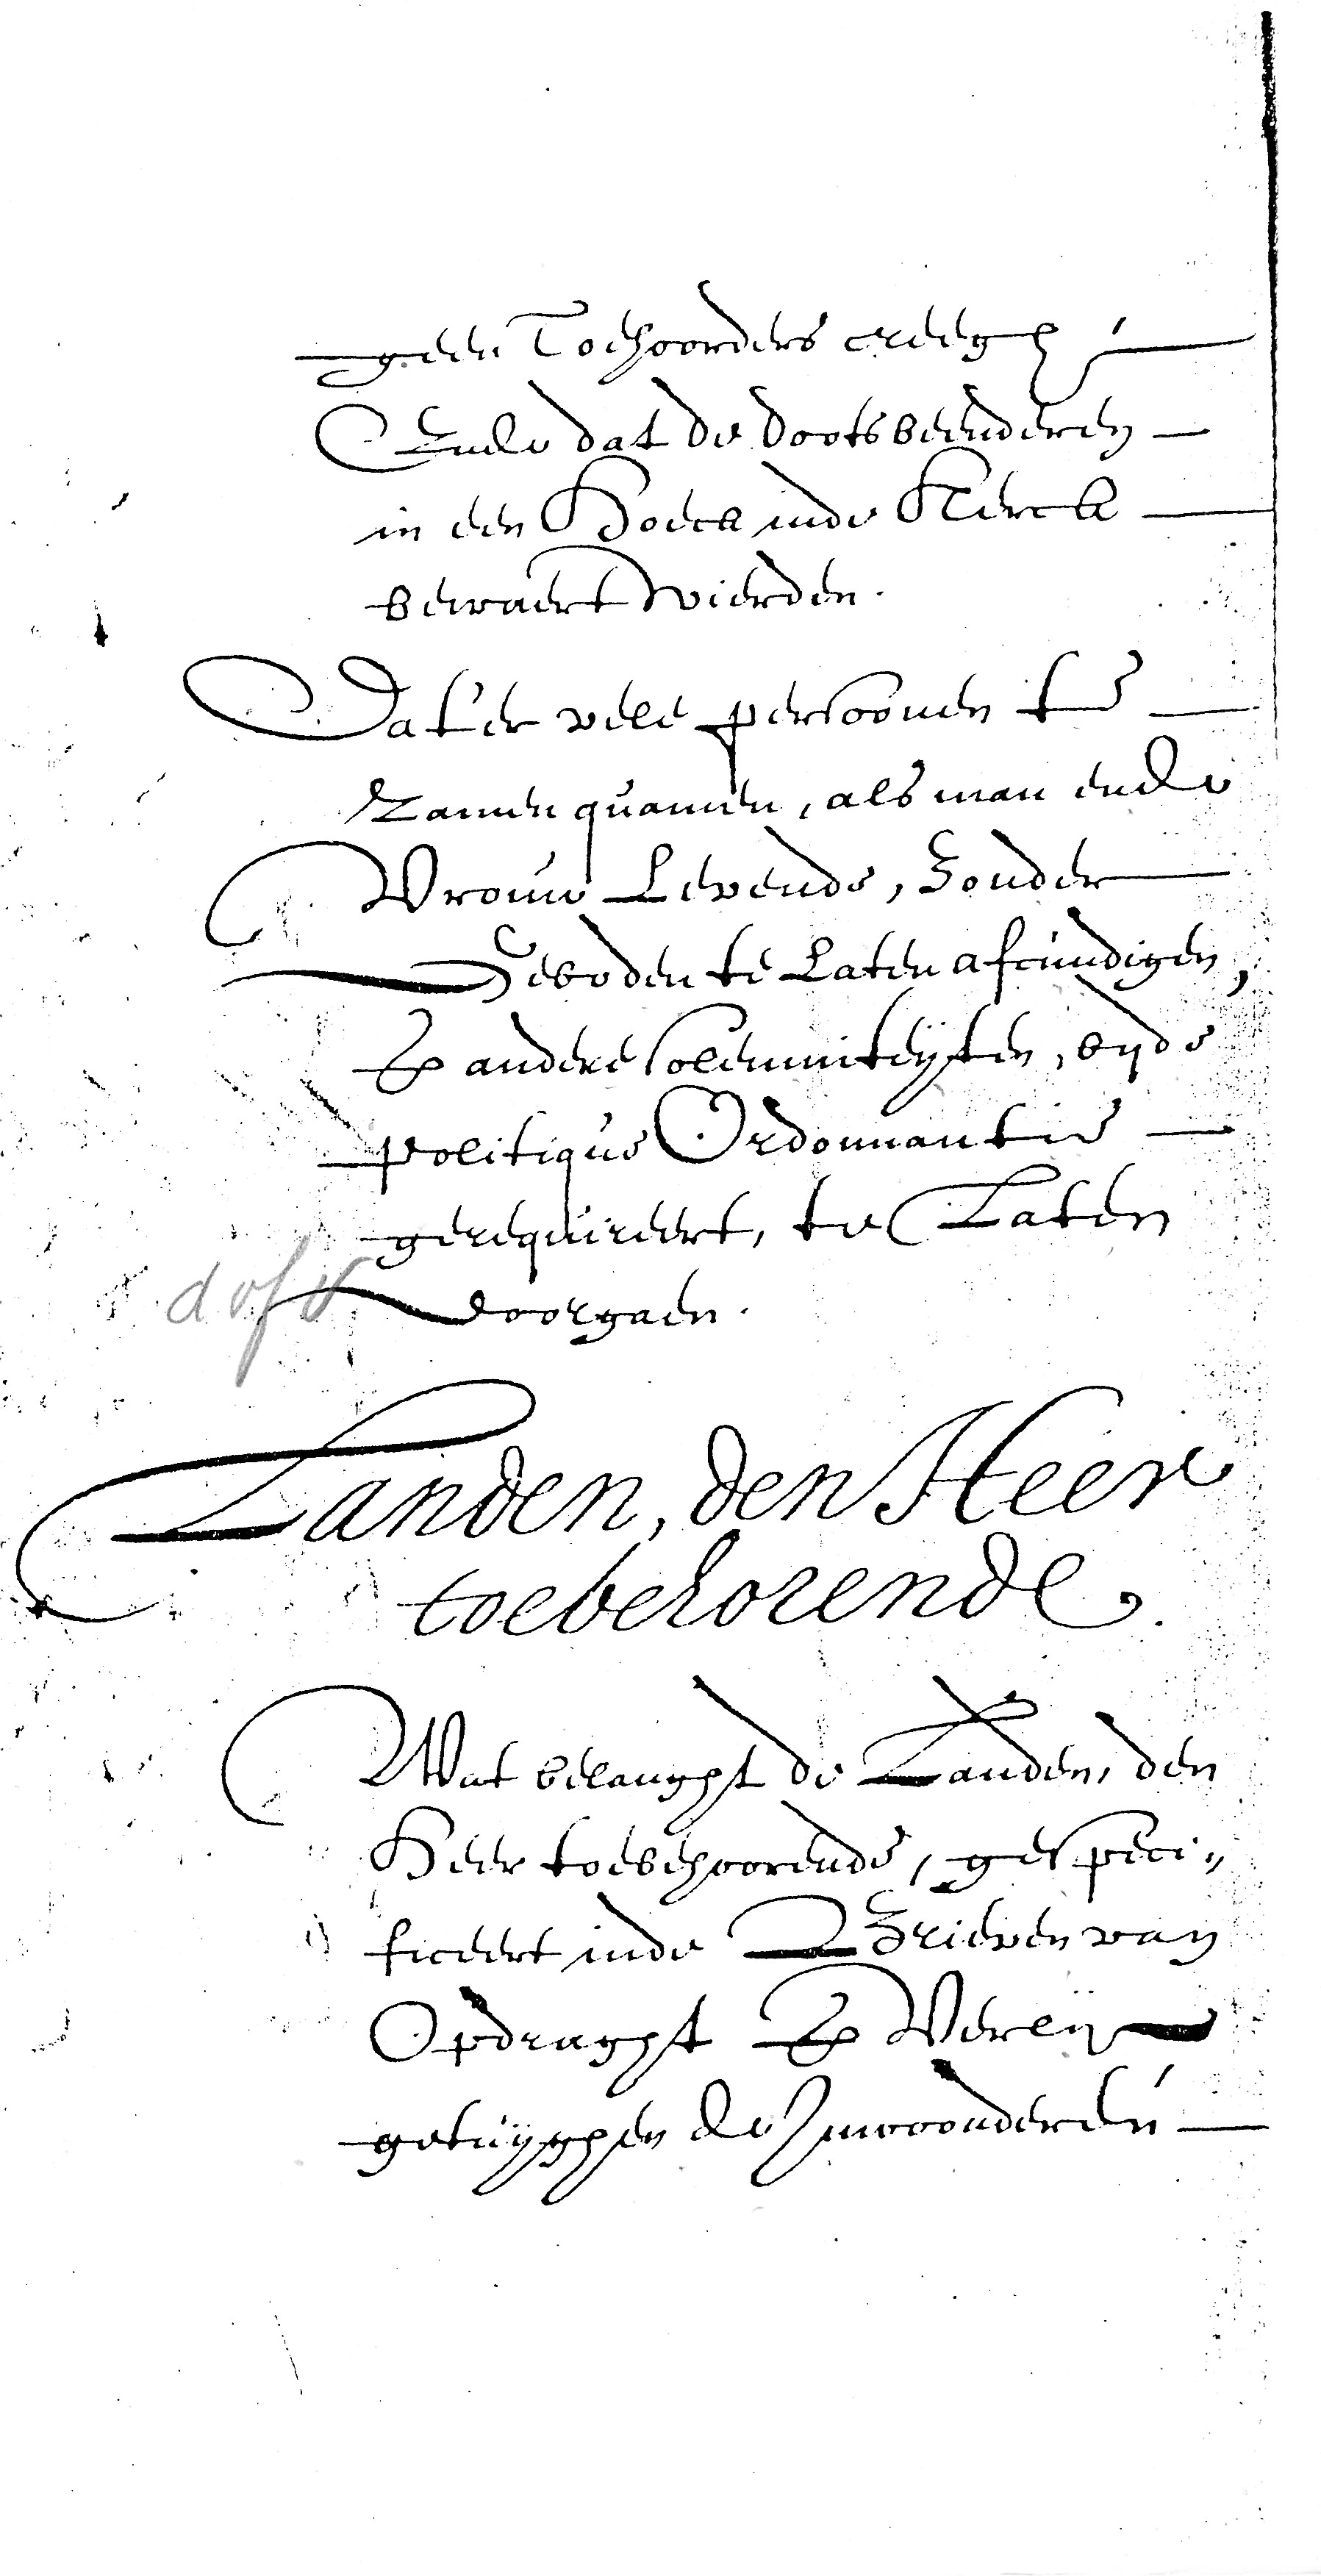 geen Toehoorders creegh
Ende dat de dootsbeenderen
in een Hoeck inde Kerck
bewaert wierden.
Dat'er vele persoonen te
zamen quamen, als man ende
Vrouw Levende, Zonder
Geboden te Laten afcundigen,
& andere solemniteÿten, bij de
politique Ordonnantie
gerequireert, te Laten
doorgaen.
Landen, den Heer
toebehorende.
Wat belanght de Landen, den
Heer toebehoorende, gespeci„
ficeert inde Brieven van
Opdraght & Verlij
getuÿghen de Inwoonderen